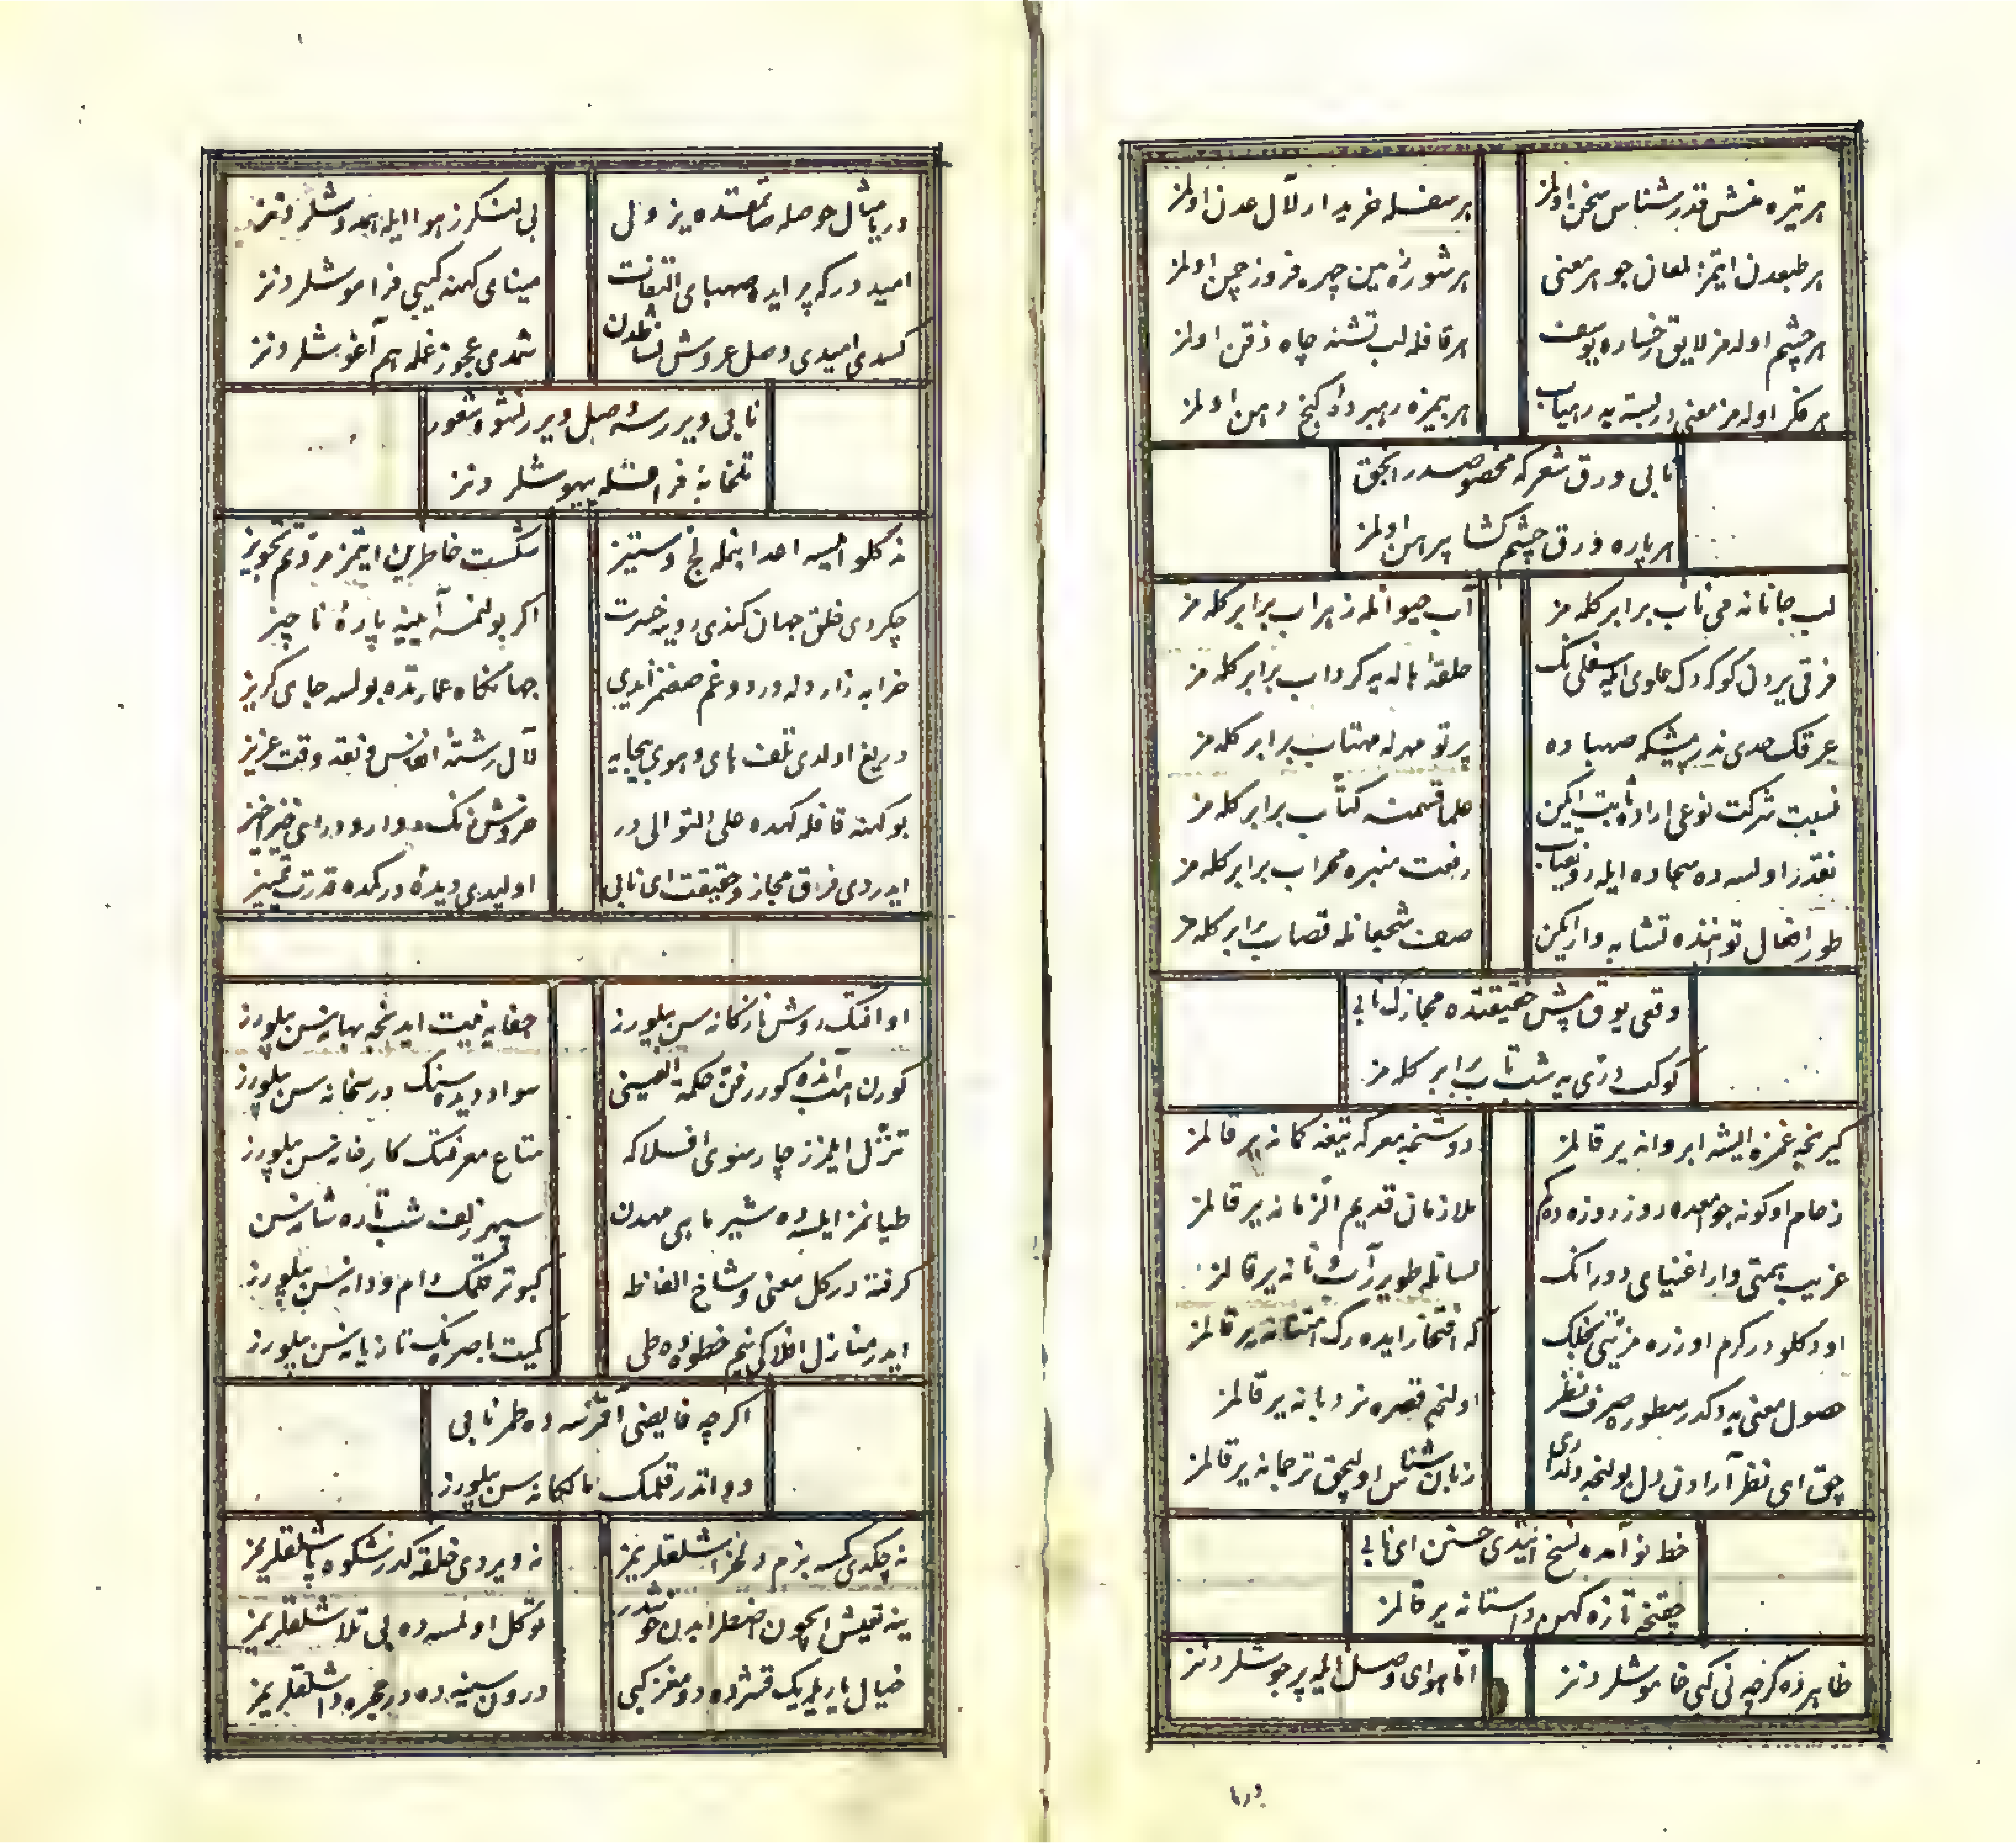 هر تیره منش قدرشناس سخن اولمز
هر سفله خریدار لآل عدن اولمز
هر طبعدن ایتمز لمعان جوهر معنی
هر شوره زمین چهره فروز چمن اولمز
هر چشم اوله مز لایق رخساره یوسف
هر قافله لب تشنه چاه ذقن اولمز
هر فکر اوله مز معنی در بسته یه رهیاب
هر بیمزه رهبرده کنج دهن اولمز
نابی ورق شعر که مخصوصدر انجق
هر پاره ورق چشم کشا پیرهن اولمز
لب جانانه می ناب برابر کله مز
آب حیوانله زهراب برابر کله مز
فرقی یر دل کوکدک علوی ایله سفلینک
حلقۀ هاله یه کرداب برابر کله مز
عرقک حدی ندر پیشکه صهباده
پرتو مهرله مهتاب برابر کله مز
نسبت شرکت نوعی اراده ثابت ایکن
علما قسمنه کتاب برابر کله مز
نقدر اولسه ده سجاده ایله
رفعت منبره محراب برابر کله مز
طور افعال تواننده تشابه وار ایکن
صف شجعانله قصاب برابر کله مز
وقعی یوق پیش حقیقتده مجازک نابی
کوکب دزی یه شبتاب برابر کله مز
کیرنجه غمزه ایشه ابروانه یر قالمز
دوشنجه معرکه تیغه کمانه یر قالمز
زحام اوکونه جوامعده روز روزه ده کم
ملازمان قدیم الزمانه یر قالمز
غریب همتی وار اغنیای دورانک
لسانله طویرر آب و نانه یر قالمز
اودکلو در کرم اوزره مزیتی بخلک
که افتخار ایده رک امتنانه یر قالمز
حصول معنی یه دکدر سطوره صرف نظر
اولنجه قصره نردبانه یر قالمز
چق ای نظر آرادن دل بولنجه دلداری
زبان شناس اولیجق ترجمانه یر قالمز
خط نو آمده نسخ ایتدی حسنن ای نابی
چقنجه تازه کهن داستانه یر قالمز
ظاهرده کرچه نی کبی خاموشلردنز
اما هوای وصل ایله پر جوشلردنز
دریا
دریا مثال حوصله صافتنده یز ولی
بی لنکرز هوا ایله همدوشلردنز
امید در که پر ایده صهبای التفات
مینای کهنه کبی فراموشلردنز
کسدی امیدی وصل عروس نشاطدن
شمدی عجوز غمله هم آغوشلردنز
نابی ویرر سه صبل ویرر نشو و شعور
تلخابۀ فراقله بیهوشلردنز
نه کلو ایسه اعدا ایله لج و ستیز
شکست خاطرین ایتمز مروتم تجویز
چکردی خلق جهان کندی روینه حسرت
اکر بولنمسه آیینه پارۀ ناچیز
خرابه زار دله درد و غم صغنمزایدی
جهانکاه عمارتده بولسه جای کریز
دریغ اولدی تلف های و هوی بیجایه
لآل رشتۀ انفاس و نقد وقت عزیز
بو کهنه قافله کهده علی التوالی در
خروش زنک درای خیز اخیز
ایدردی فرق مجاز و حقیقت ای نابی
اولیدی دیدۀ درکمده قدرت تمییز
او آفتک روش نازکانه سن بیلورز
جفایه نیت ایدنجه بهانه سن بیلورز
کورن انده کورر فن حکمة العینی
سواد دیده سنک درسخانه سن بیلورز
تنزل ایلمزز چارسوی افلاکه
متاع معرفتک کارخانه سن بیلورز
طیانمز ایلسه ده شیر ماهی مهدن
سپهر زلف شب تاره شانه سن
کرفته در کل معنی و شاخ الفاظه
کبوتر قلمک دام و دانه سن بیلورز
ایدر منازل افلاکی نیم خطوه ده طی
کمیت باصره نک تازیانه سن بیلورز
اکرچه فایضی آقرنسه ده طرز نابی
دواتدر قلمک ماکیانه سن بیلورز
نه چکدی کسه بزم دلخراشلقلریمز
نه ویردی خلقه کدر شکوه پاشلقلریمز
ینه تعیش ایچون اضطرابدن خوشدر
توکل اولمسه ده بی تلاشلقلریمز
خیال یار یله یک قشرده دو مغز کبی
درون سینه ده در حجره داشلقلریمز